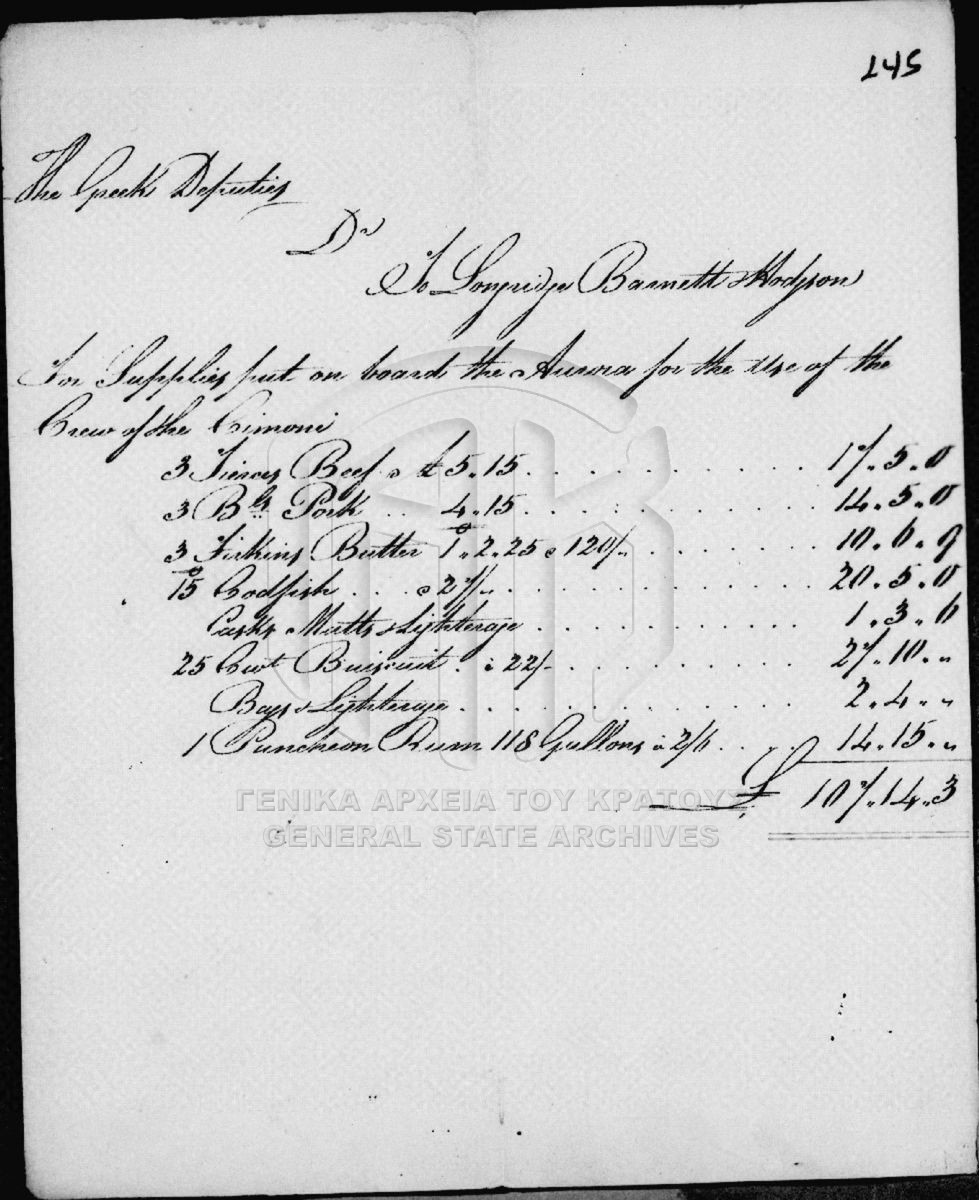 145
The Greek Deputies
Dr
To Longridge Barnett & Hodgson
For Supplies put on board the Aurora for the use of the
Crew of the Cimoni
3 Tierces Beef a £5.15 . . . . . . . . . . 17.5.0
3 Bls Pork . . 4.15 . . . . . . . . . . 14.5.0
3 Firkins Butter 1.2.25 a 120/- . . . . . . 10.6.9
15 Codfish . . . a 27/- . . . . . . . . . . 20.5.0
Casks Matts & Lighterage . . . . . . . . 1.3.6
25 Cwt Buiscuit . a 22/- . . . . . . . . 27.10.„
Bags & Lighterage . . . . . . . . . . 2.4.„
1 Puncheon Rum 118 Gallons a 2/6 . . . . 14.15.„
£ 107.14.3
ΓΕΝΙΚΑ ΑΡΧΕΙΑ ΤΟΥ ΚΡΑΤΟΥΣ
GENERAL STATE ARCHIVES